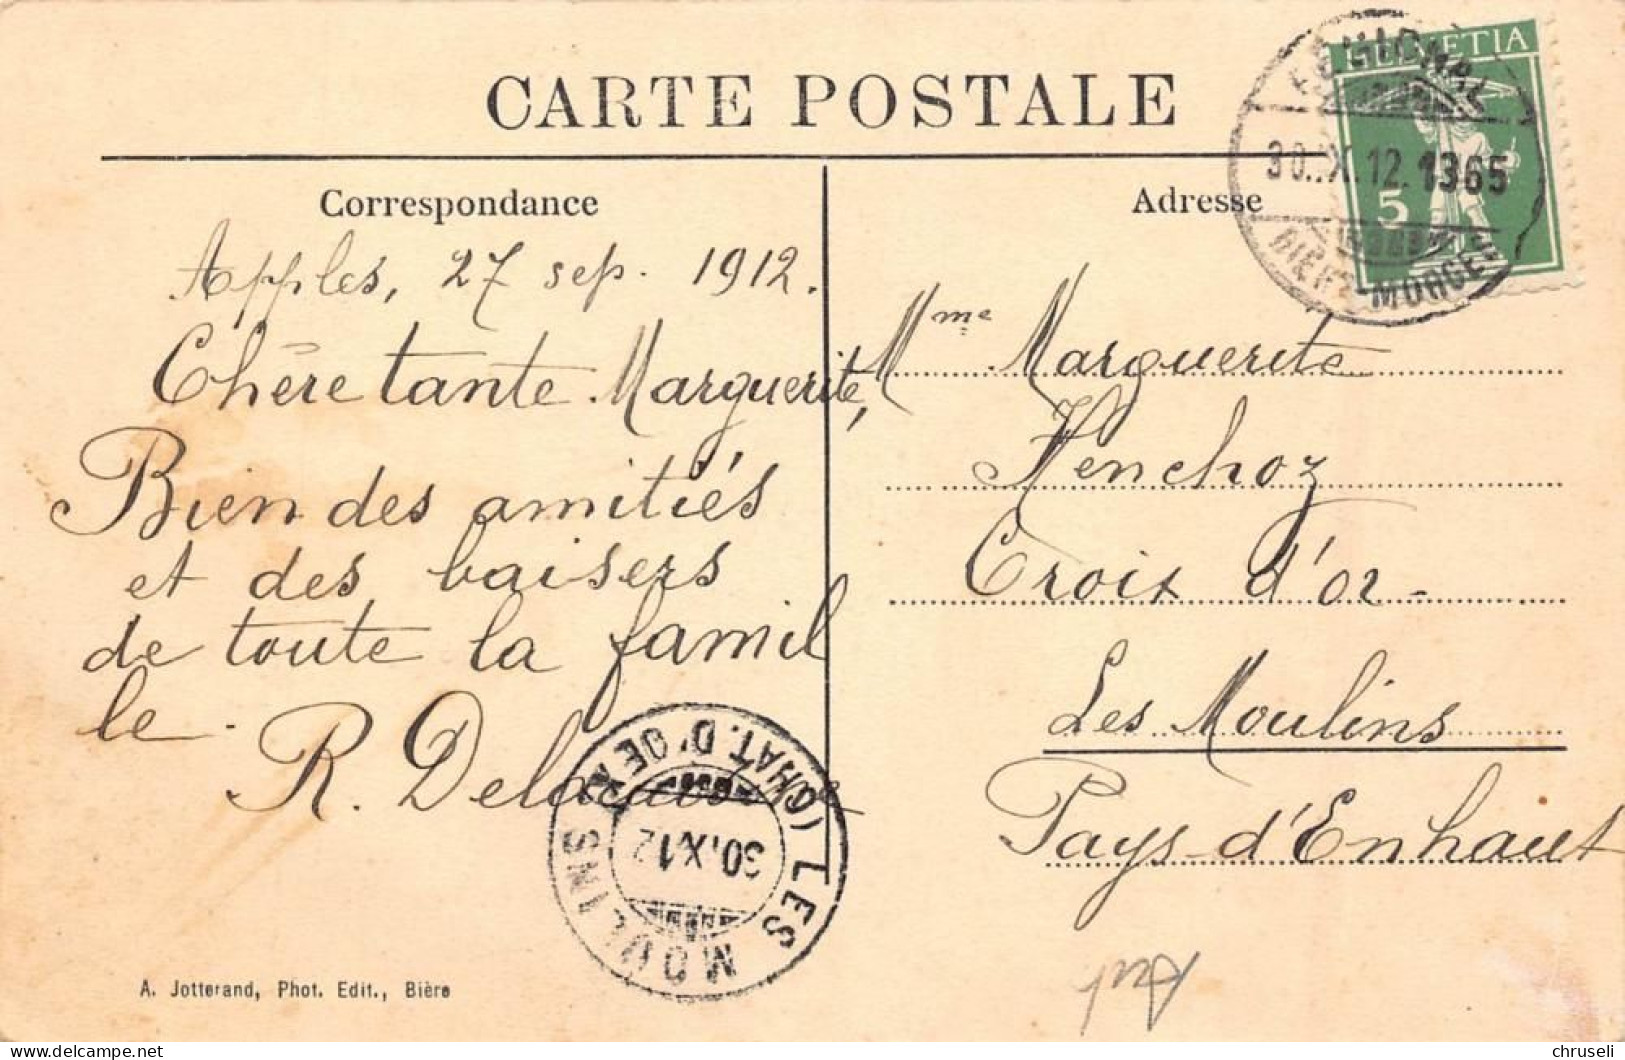 CARTE POSTALE
Correspondance
Apples, 27 sep. 1912.
Chère tante Marguerite,
Bien des amitiés
et des baisers
de toute la famil
le.
R.
A. Jotterand, Phot. Edit., Bière
(CHAT. D'OEX)
30.IX.12
LES MOULINS
HELVETIA
5
30.IX.12. 1365
BIÈRE-MORGES
Adresse
Mme Marguerite
Henchoz
Croix d'or-
Les Moulins
Pays-d'Enhaut
chruseli